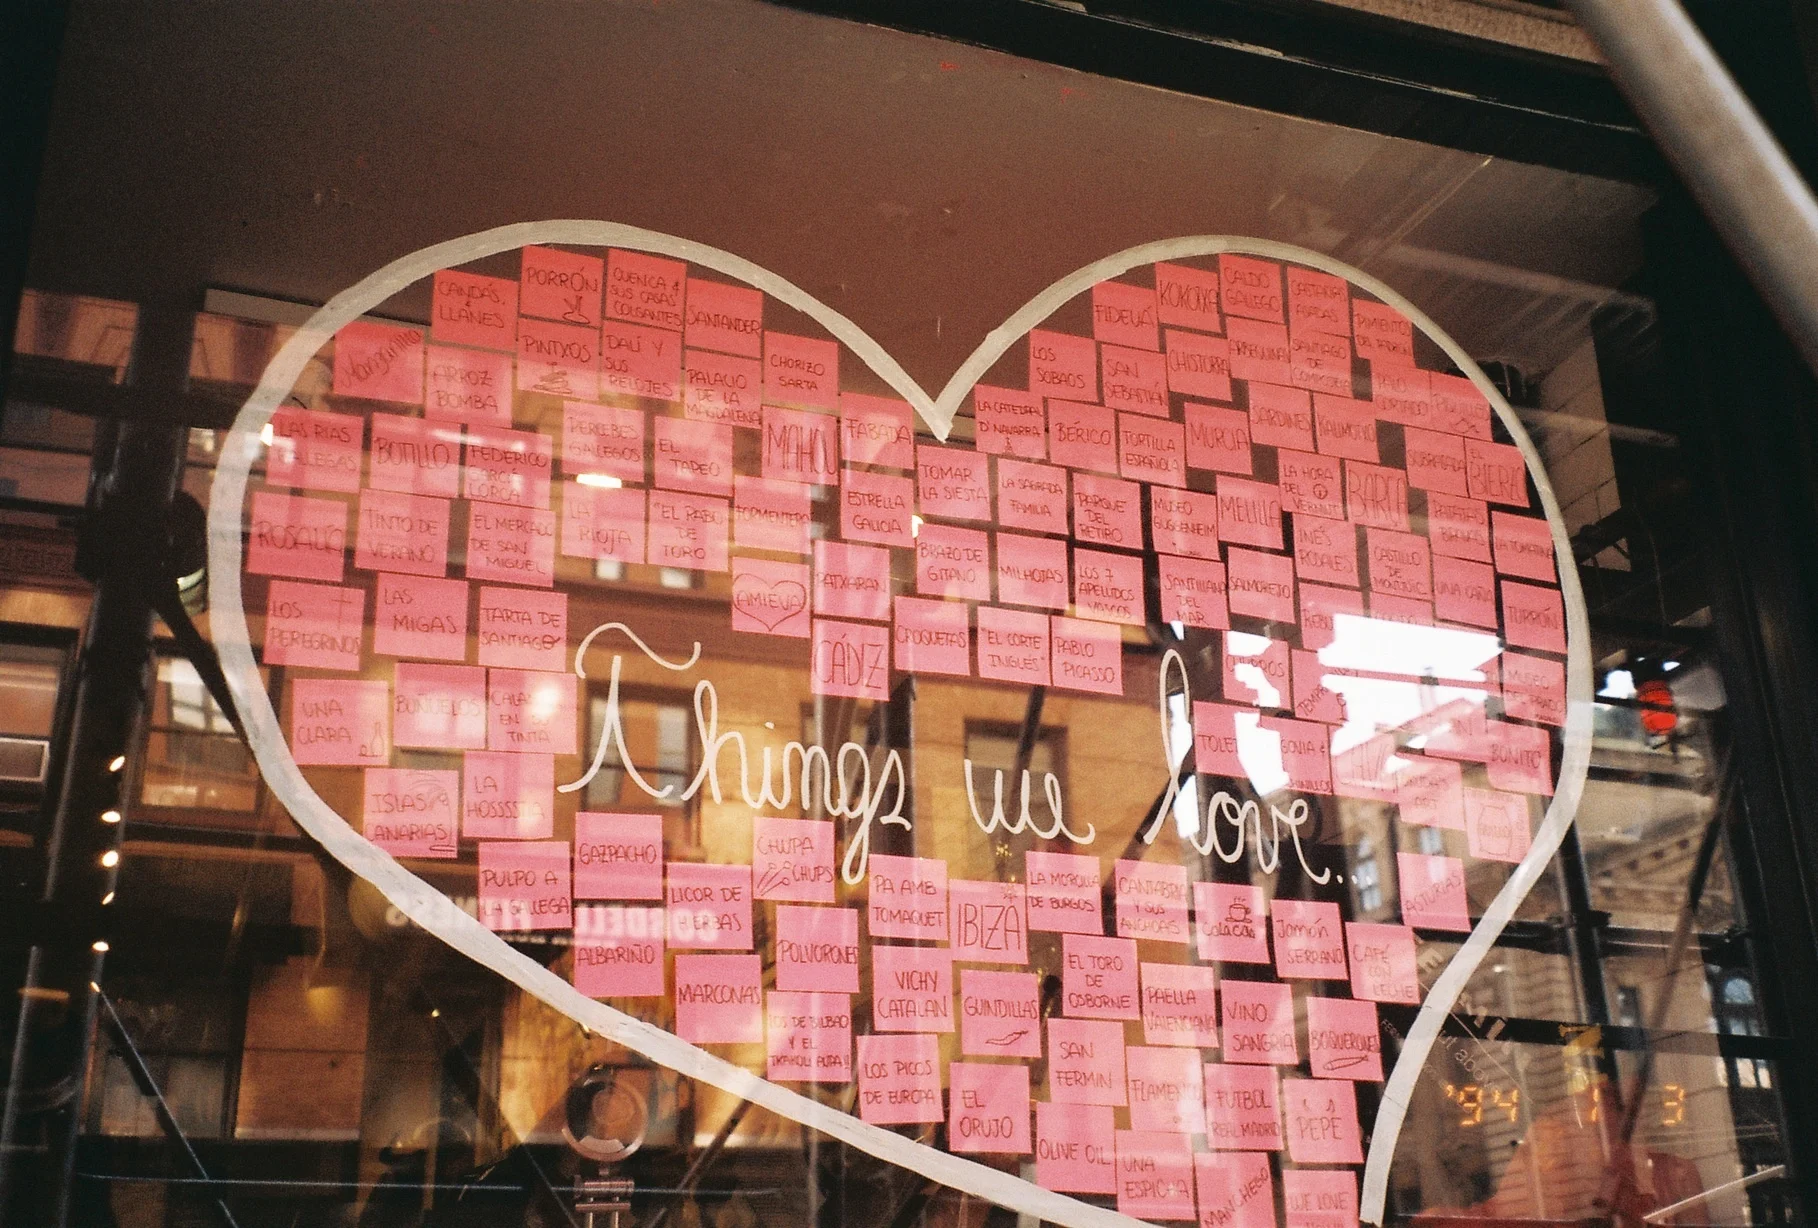 PORRÓN
CUENCA &
SUS CASAS
COLGANTES
CANDÁS,
&
LLANES
SANTANDER
Manzanilla
ARROZ
BOMBA
PINTXOS
DALÍ Y
SUS
RELOJES
PALACIO
DE LA
MAGDALENA
CHORIZO
SARTA
LAS RIAS
GALLEGAS
BOTILLO
FEDERICO
GARCÍA
LORCA
PERCEBES
GALLEGOS
EL
TAPEO
MAHOU
FABADA
ROSALÍA
TINTO DE
VERANO
EL MERCADO
DE SAN
MIGUEL
LA
RIOJA
"EL RABO
DE
TORO
FORMENTERA
ESTRELLA
GALICIA
LOS
PEREGRINOS
LAS
MIGAS
TARTA DE
SANTIAGO
AMIEVA
PATXARAN
CÁDIZ
UNA
CLARA
BUÑUELOS
EN SU
TINTA
ISLAS
CANARIAS
LA
HOSSSTIA
CALDO
GALLEGO
KOKOTXA
FIDEUÁ
CASTAÑAS
ASADAS
PIMIENTOS
DEL PADRÓN
LOS
SOBAOS
SAN
SEBASTIÁN
CHISTORRA
ARBEQUINA
SANTIAGO
DE
COMPOSTELA
PALO
CORTADO
LA CATEDRAL
D'NAVARRA
IBÉRICO
TORTILLA
ESPAÑOLA
MURCIA
SARDINES
KALIMOTXO
SOBRASADA
EL
BIERZO
TOMAR
LA SIESTA
LA SAGRADA
FAMILIA
PARQUE
DEL
RETIRO
MUSEO
GUGGENHEIM
MELILLA
LA HORA
DEL
VERMUT
BARÇA
PATATAS
BRAVAS
LA TOMATINA
BRAZO DE
GITANO
MILHOJAS
LOS 7
APELLIDOS
VASCOS
SANTILLANA
DEL
MAR
SALMOREJO
INÉS
ROSALES
CASTILLO
DE
MONTJUIC
UNA CAÑA
TURRÓN
CROQUETAS
"EL CORTE
INGLÉS"
PABLO
PICASSO
CHURROS
MUSEO
DEL PRADO
BONITO
Things we love...
PULPO A
LA GALLEGA
GAZPACHO
LICOR DE
HIERBAS
CHUPA
CHUPS
PA AMB
TOMAQUET
IBIZA
LA MORCILLA
DE BURGOS
CANTABRIA
Y SUS
ANCHOAS
Cola Cao
Jamón
SERRANO
CAFÉ
CON
LECHE
ASTURIAS
ALBARIÑO
MARCONAS
POLVORONES
VICHY
CATALAN
GUINDILLAS
EL TORO
DE
OSBORNE
PAELLA
VALENCIANA
VINO
SANGRIA
BOQUERONES
LOS DE BILBAO
Y EL
LOS PICOS
DE EUROPA
EL
ORUJO
SAN
FERMIN
FLAMENCO
FUTBOL
REAL MADRID
PEPE
OLIVE OIL
UNA
ESPICHA
MANCHEGO
WE LOVE
'94 7 3